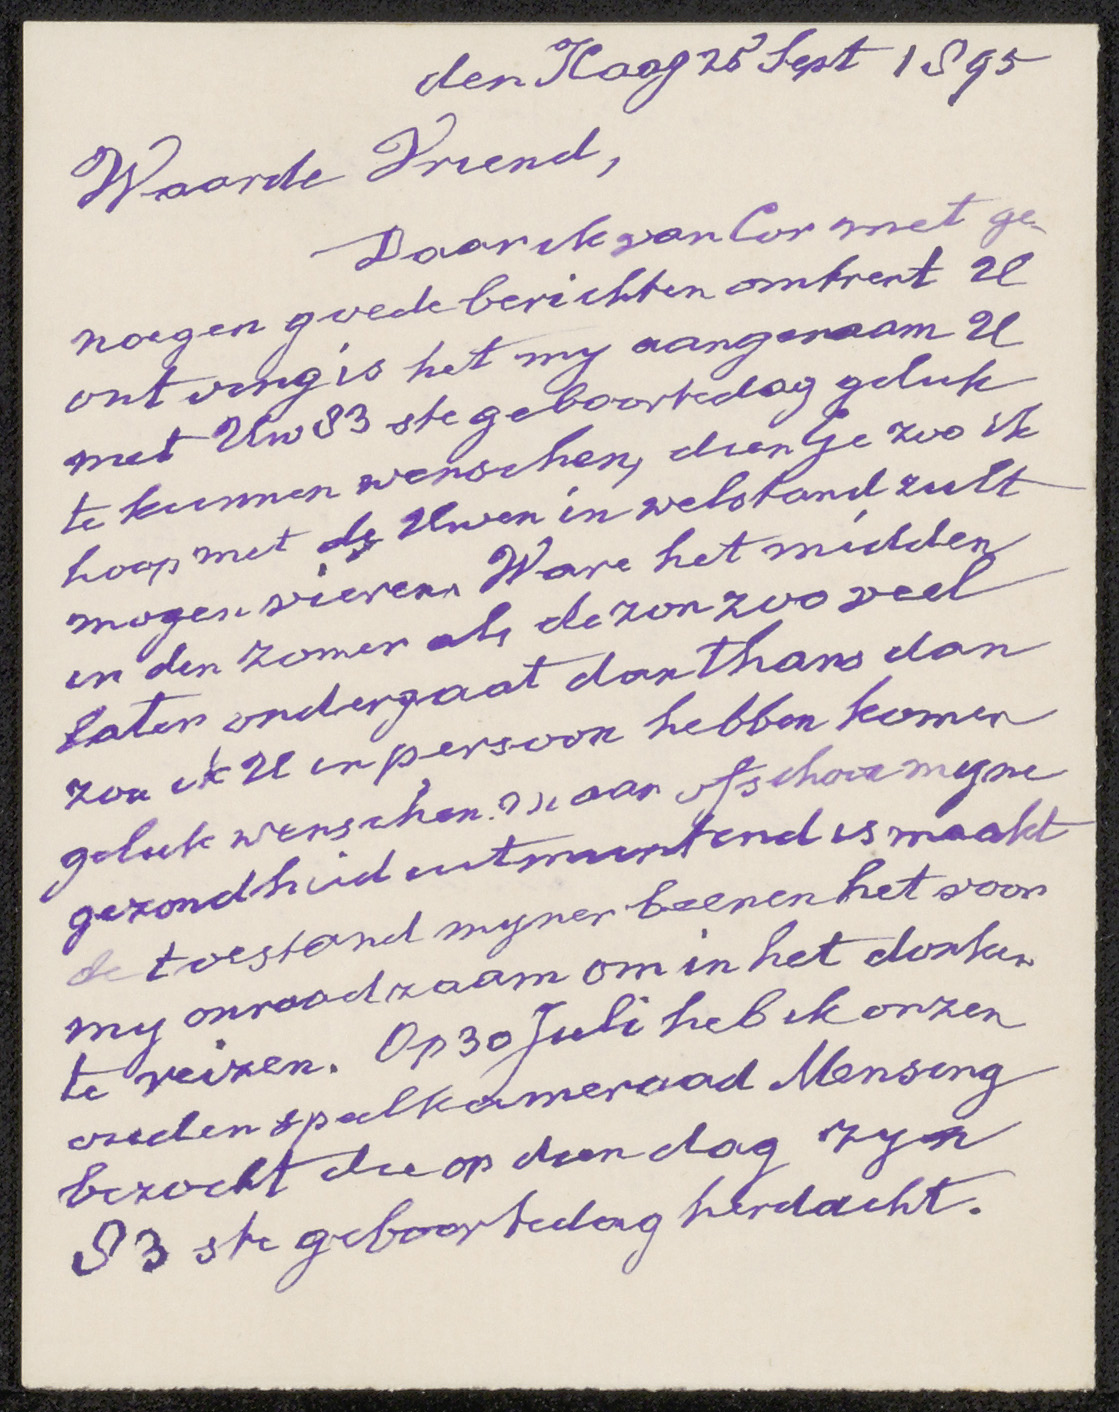 den Haag 25 Sept 1895
Waarde Vriend,
Daar ik van Cor met ge-
noegen goede berichten omtrent U
ontving is het my aangenaam U
met Uw 83 ste geboortedag geluk
te kunnen wenschen, dien Ge zoo ik
hoop met de Uwen in welstand zult
mogen vieren. Ware het midden
in den zomer als de zon zoo veel
later ondergaat dan thans dan
zou ik U in persoon hebben komen
geluk wenschen. Maar ofschoon myne
gezondheid uitmuntend is maakt
de toestand myner beenen het voor
my onraadzaam om in het donker
te reizen. Op 30 Juli heb ik onzen
ouden speelkameraad Mensing
bezocht die op dien dag zyn
83 ste geboortedag herdacht.